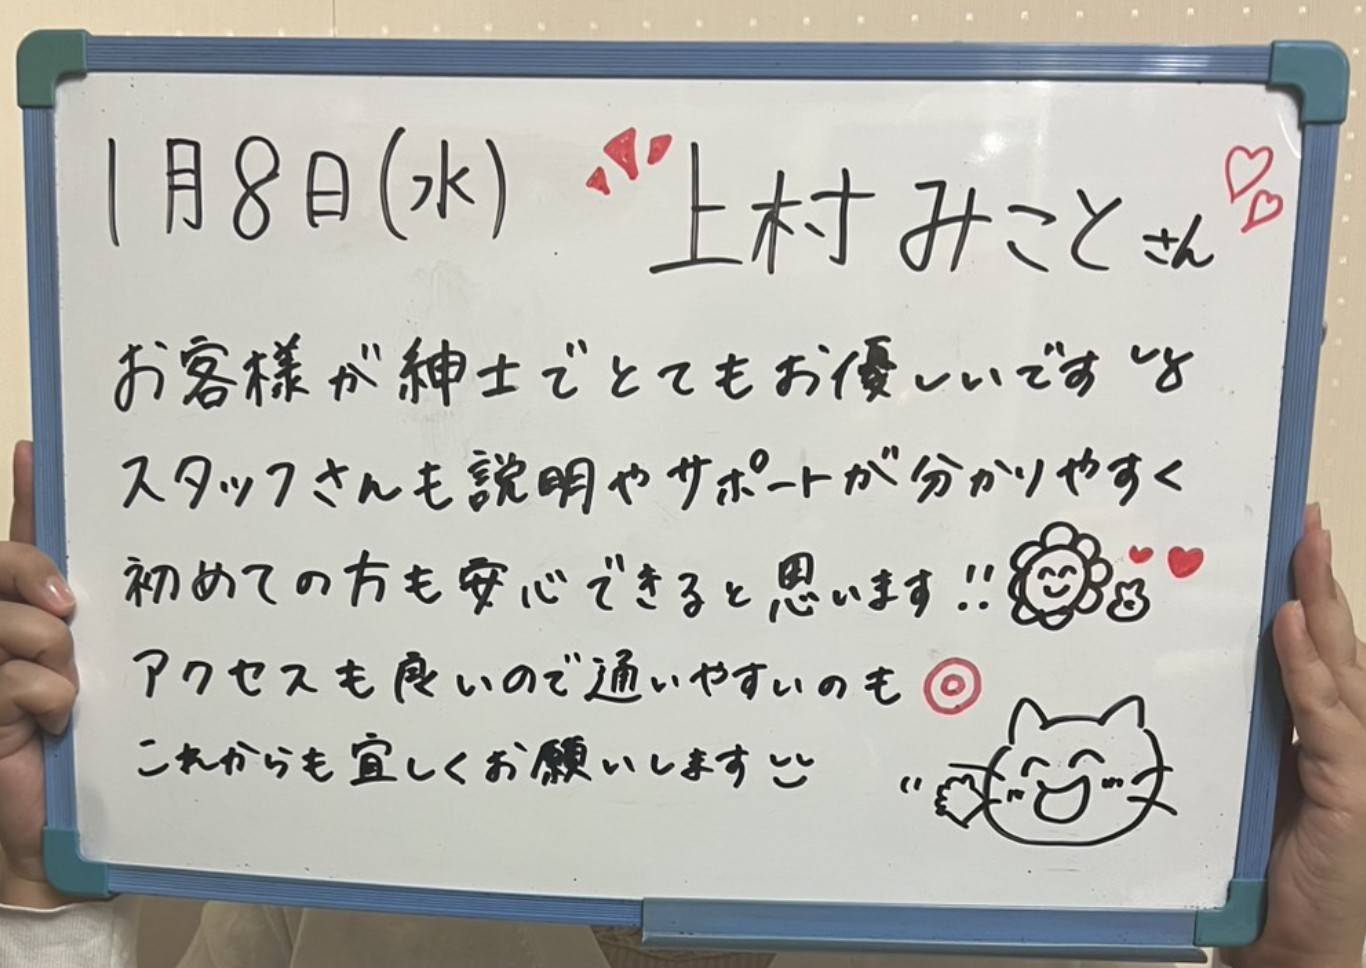 1月8日(水)
上村みことさん
お客様が紳士でとてもお優しいです
スタッフさんも説明やサポートが分かりやすく
初めての方も安心できると思います!!
アクセスも良いので通いやすいのも◎
これからも宜しくお願いします